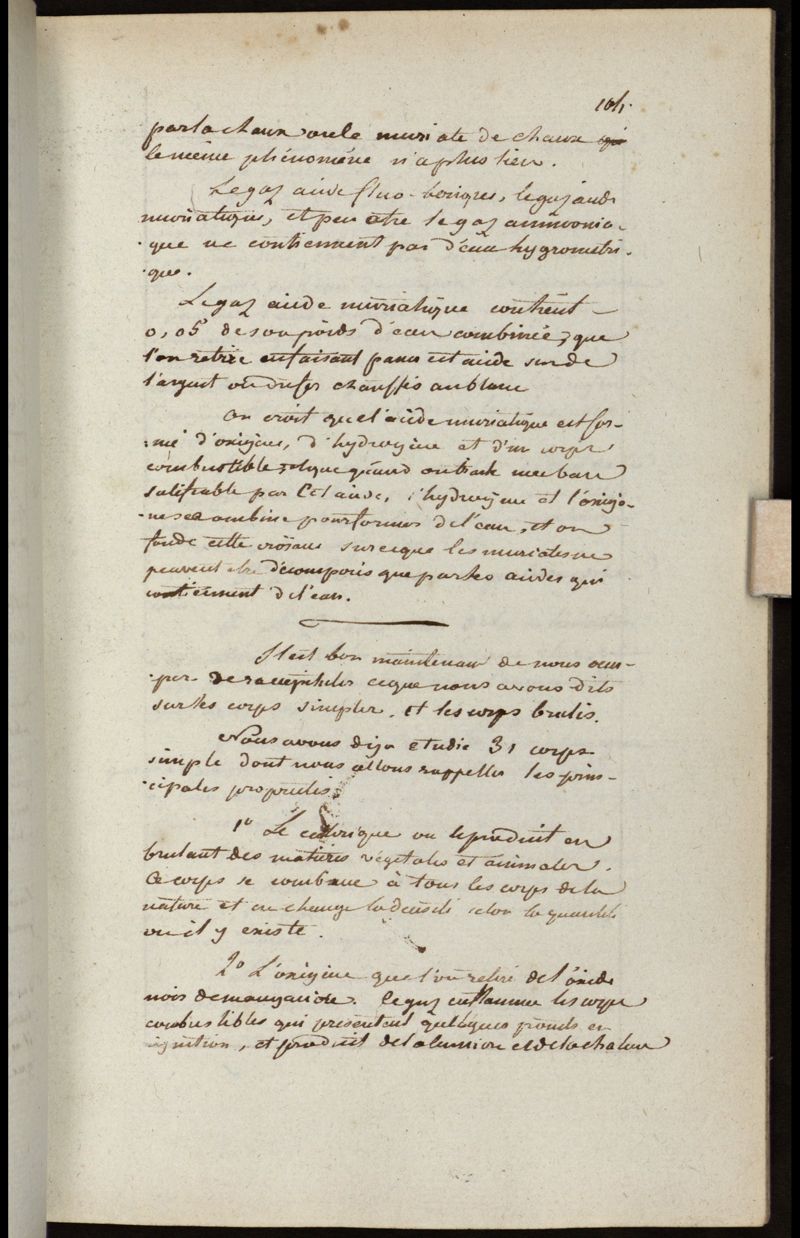 104.
par la chaux ou le muriate de chaux qui
le même phénomène n'a plus lieu.
Le gaz acide fluo-borique, le gaz acide
muriatique, et peu etre le gaz ammonia-
-que ne contiennent pas d'eau hygrometri-
-que.
Le gaz acide muriatique contient
0,05 de son poids d'eau combinée, que
l'on retire en faisant passer cet acide sur de
l'argent ou du fer chauffés au blanc
On croit que l'acide muriatique est for-
-mé d'oxigene, d'hydrogène et d'un corps
combustible, et que quand on traite une base
salifiable par cet acide, l'hydrogene et l'oxigè-
-ne se combine pour former de l'eau, et on
fonde cette croïance sur ce que les muriates ne
peuvent etre décomposés que par les acides qui
contiennent de l'eau.
Il est bon maintenant de nous occu-
-per de recapituler ce que nous avons dits
sur les corps simples, et les corps brulés.
Nous avons deja etudié 31 corps
simple dont nous allons rappeller les prin-
-cipales propriétés.
1° Le calorique on le produit en
brulant des matieres végétales et animales.
Ce corps se combine à tous les corps de la
nature et en change la densité selon la quantité
ou il y existe.
2° L'oxigène que l'on retire de l'oxide
noir de manganèse. Ce gaz enflamme les corps
combustibles qui presentent quelques points en
ignition, et produit de la lumiere et de la chaleur